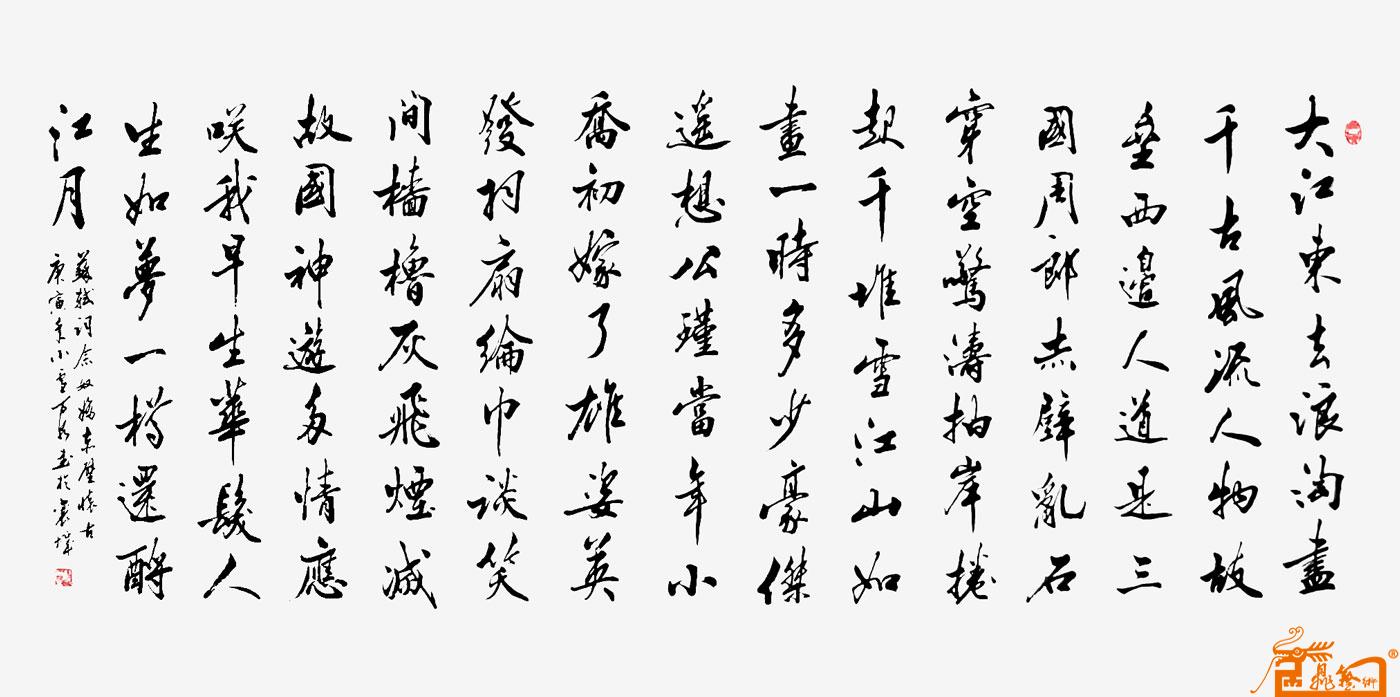 大江東去浪淘盡
千古風流人物故
壘西邊人道是三
國周郎赤壁亂石
穿空驚濤拍岸捲
起千堆雪江山如
畫一時多少豪傑
遥想公瑾當年小
喬初嫁了雄姿英
發羽扇綸巾談笑
間檣櫓灰飛煙滅
故國神遊多情應
咲我早生華髮人
生如夢一樽還酹
江月
蘇軾詞念奴嬌赤壁懷古
庚寅年小雪書於